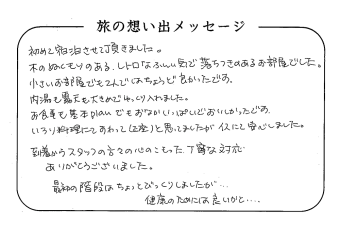 旅の想い出メッセージ
初めて宿泊させて頂きました。
木のぬくもりのある、レトロなふんい気で落ちつきのあるお部屋でした。
小さいお部屋でも2人にはちょうど良かったです。
内湯も露天も大きめでゆっくり入れました。
お食事も基本planでもおなかいっぱいでおいしかったです。
いろり料理にてすわって(正座)と思ってましたが イスにて安心しました。
到着からスタッフの方々の心のこもった丁寧な対応
ありがとうございました。
最初の階段はちょっとびっくりしましたが…
健康のためには良いかと…。